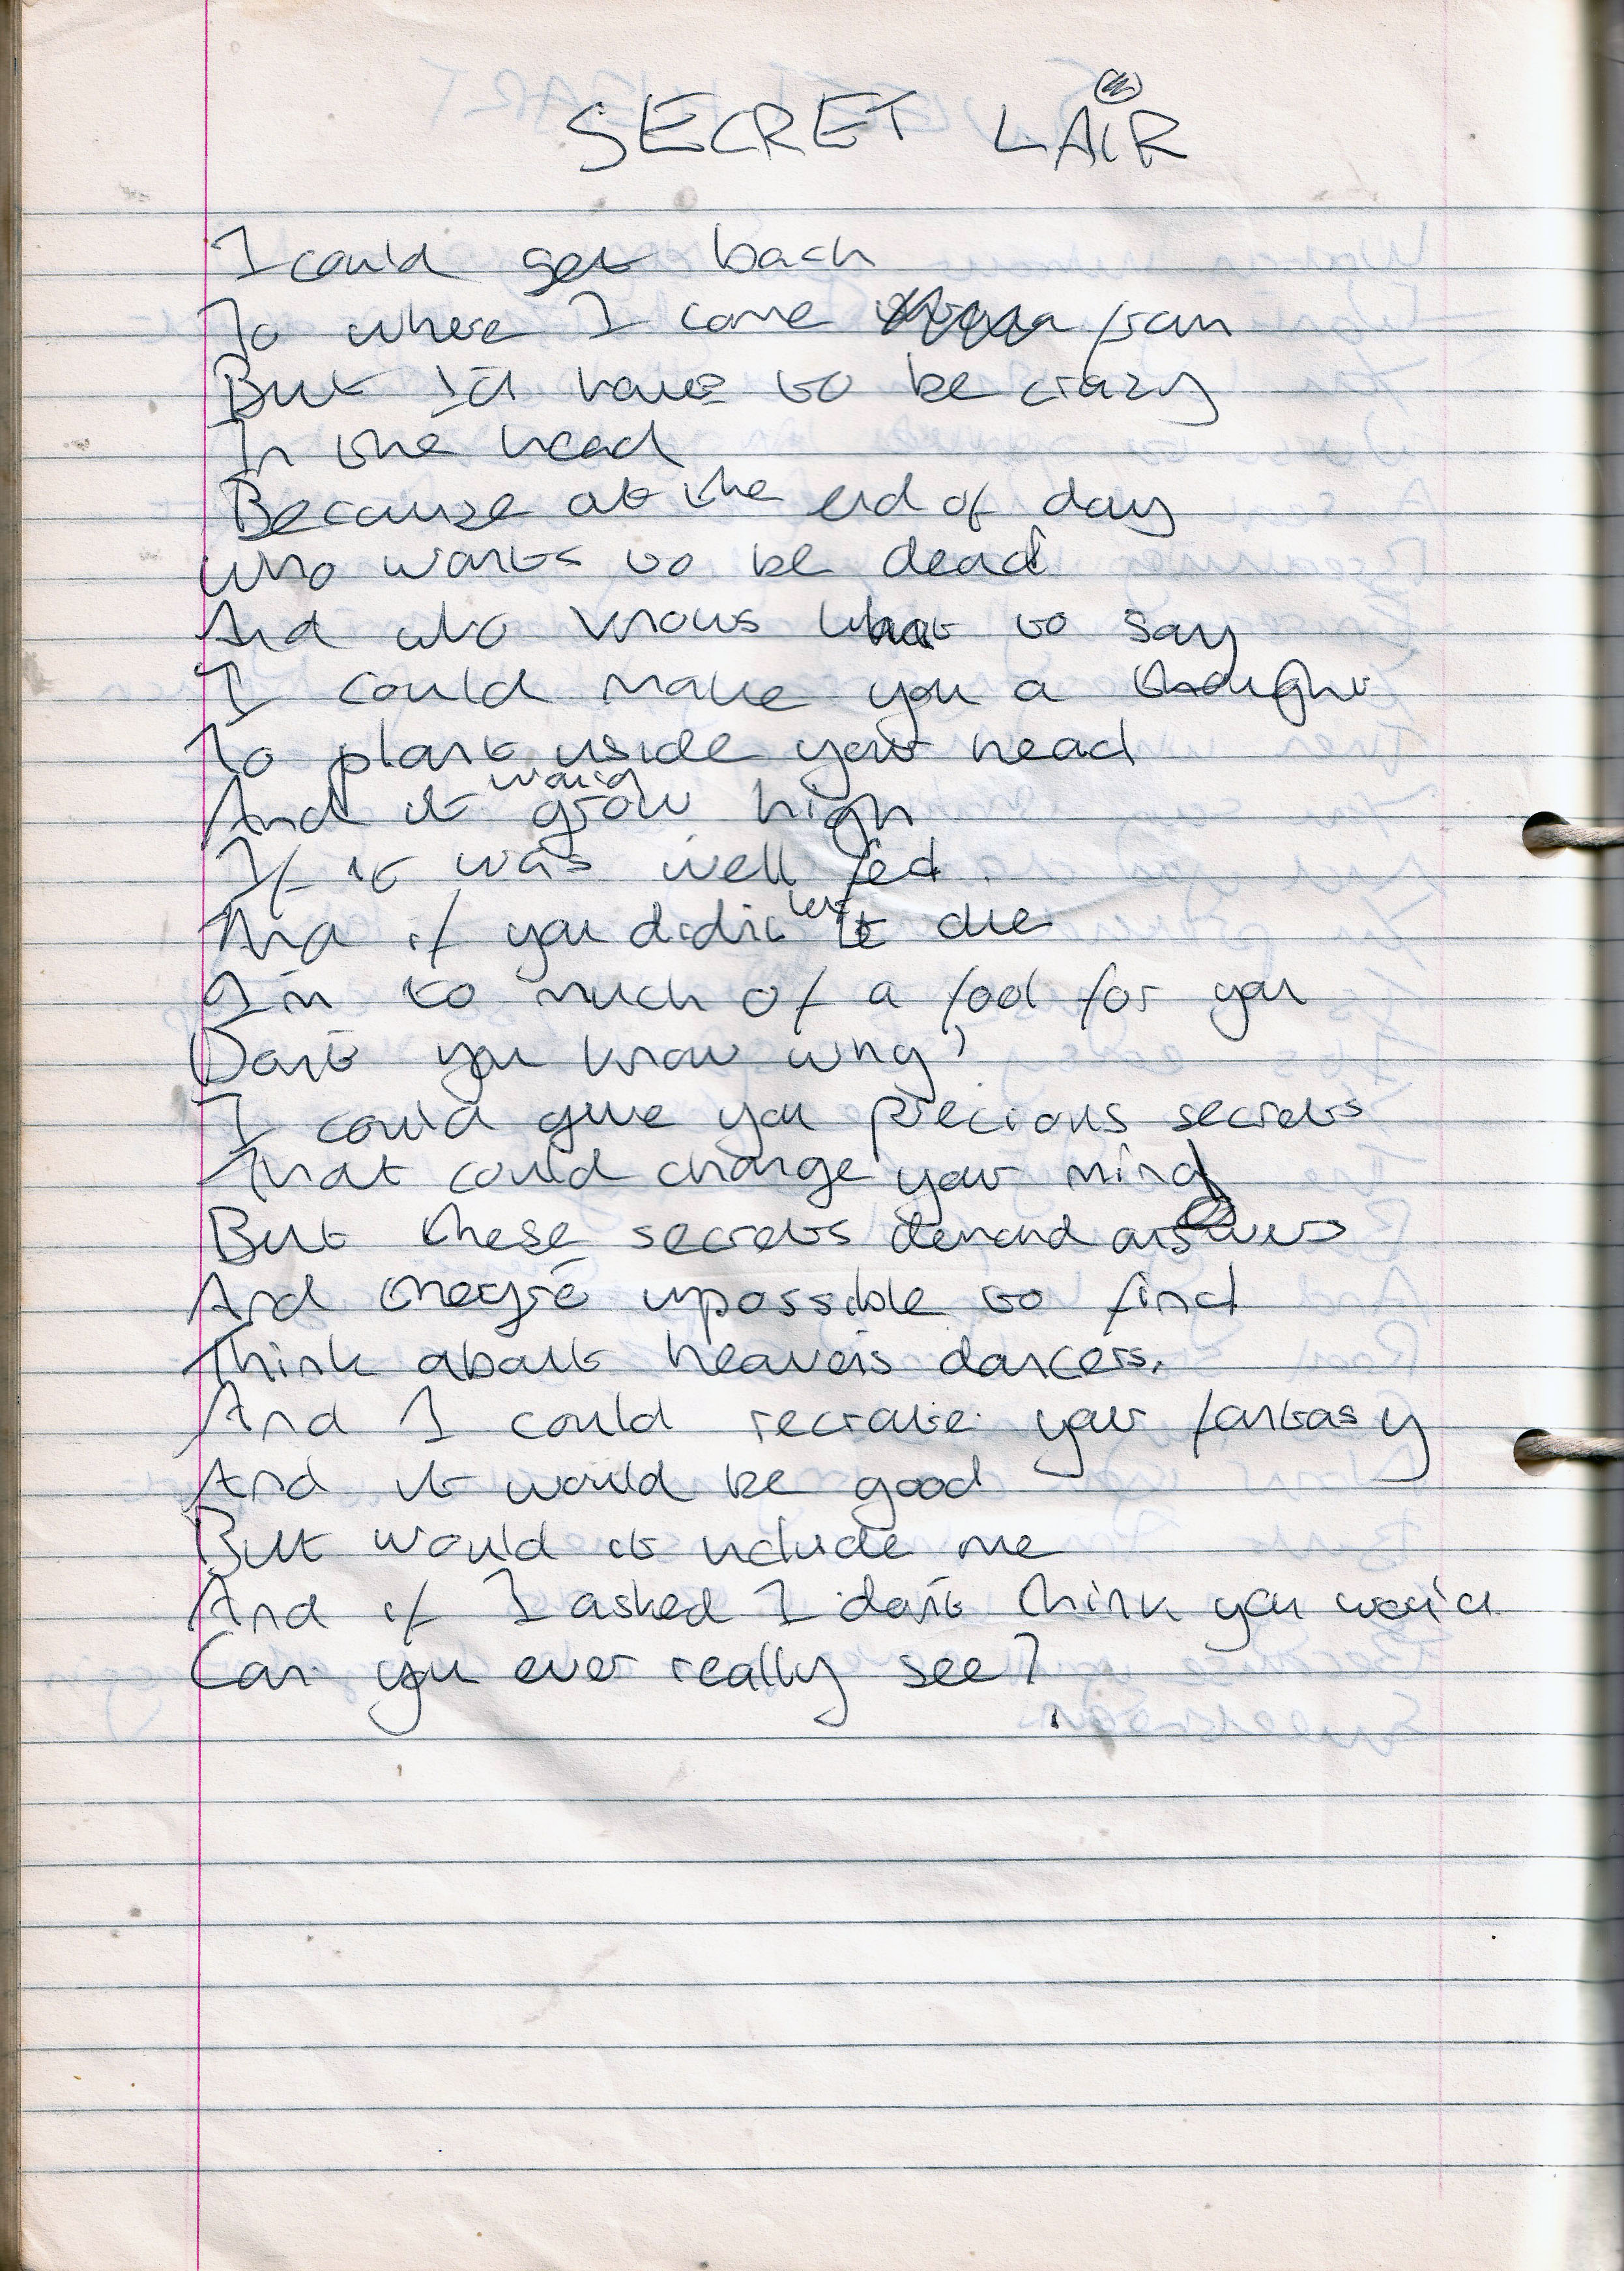 SECRET LAIR
I could get back
To where I come from
But I'd have to be crazy
In the head
Because at the end of day
Who wants to be dead
And who knows what to say
I could make you a thought
To plant inside your head
And it would grow high
If it was well fed
And if you didn't let it die
I'm to much of a fool for you
Don't you know why?
I could give you precious secrets
That could change your mind
But these secrets demand answers
And they're impossible to find
Think about heaven's dancers.
And I could recreate your fantasy
And it would be good
But would it include me
And if I asked I don't think you would
Can you ever really see?